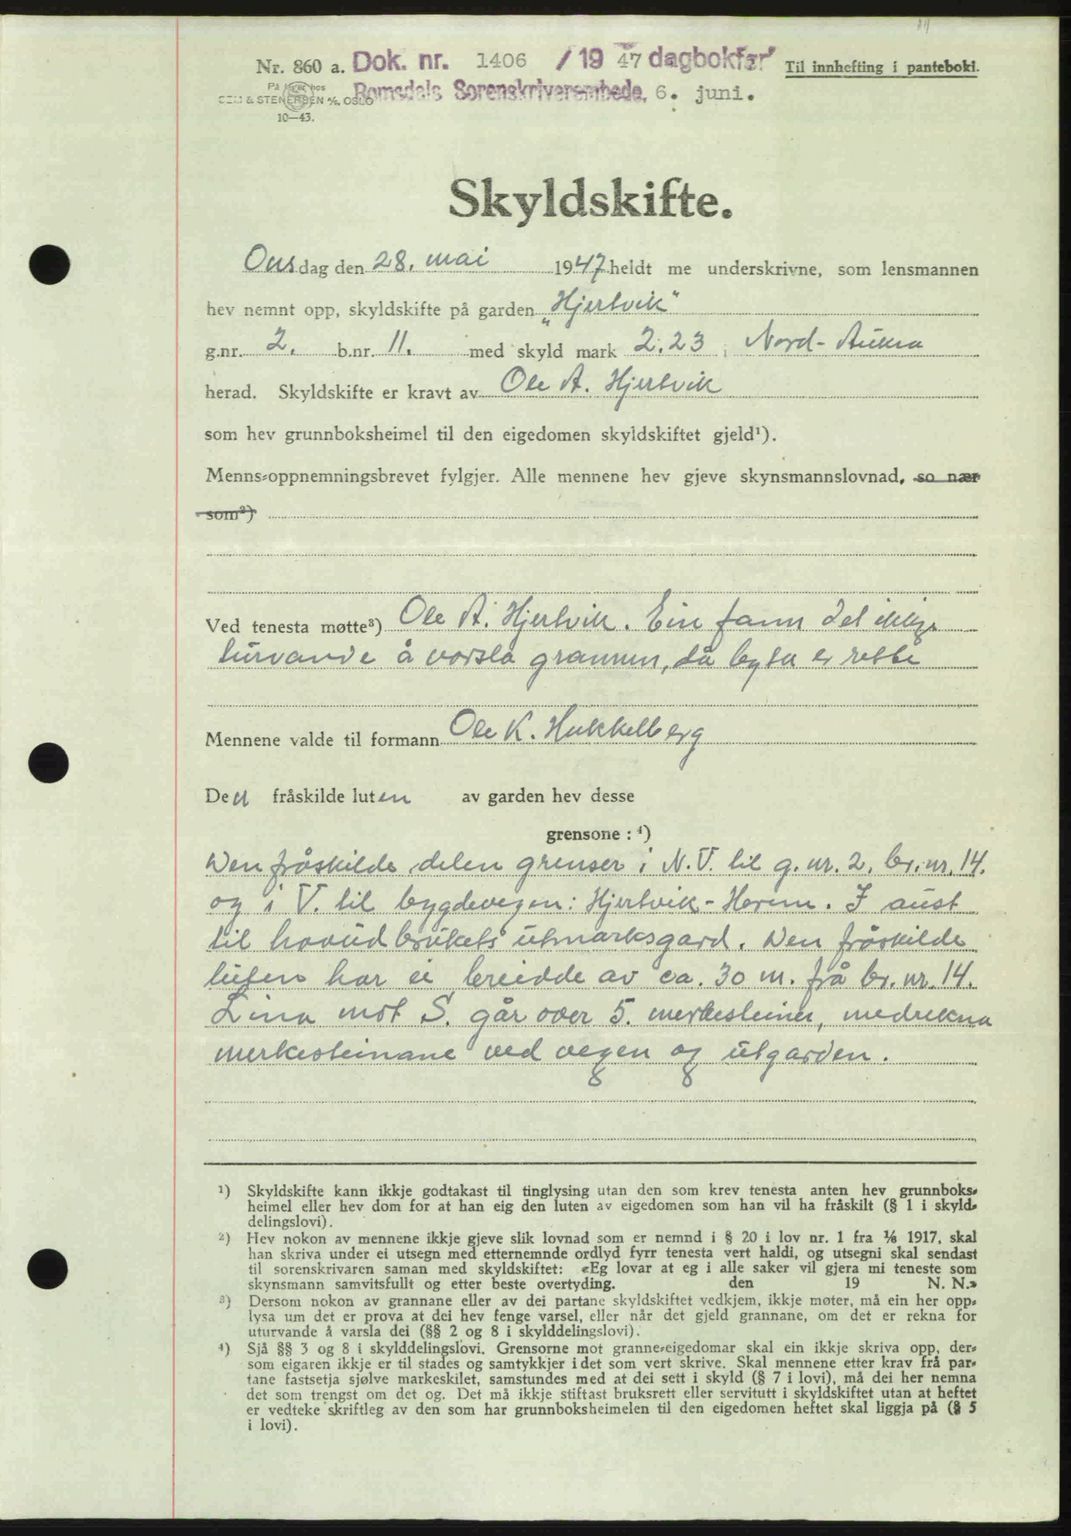 Nr. 860 a. Dok. nr. 1406 / 19 47 dagbokført Til innhefting i pantebok.
Romsdals Sorenskriverembede, 6. juni.
& STENERSEN A/S, OSLO
10—43.
Skyldskifte.
Onsdag den 28. mai 1947 heldt me underskrivne, som lensmannen
hev nemnt opp, skyldskifte på garden „Hjertvik"
g.nr. 2. b.nr. 11. med skyld mark 2.23 i Nord-Aukra
herad. Skyldskifte er kravt av Ole A. Hjertvik
som hev grunnboksheimel til den eigedomen skyldskiftet gjeld¹).
Menns-oppnemningsbrevet fylgjer. Alle mennene hev gjeve skynsmannslovnad, so nær
som²)
Ved tenesta møtte³) Ole A. Hjertvik. Ein fann det ikkje
turvande å varsla grannen, då byta er rette
Mennene valde til formann Ole K. Hukkelberg
Den fråskilde luten av garden hev desse
grensone : ⁴)
Den fråskilde delen grenser i N.V. til g. nr. 2, br. nr. 14.
og i V. til bygdevegen: Hjertvik - Horem. I aust
til hovudbrukets utmarksgard. Den fråskilde
luten har ei breidde av ca. 30 m. frå br. nr. 14.
Lina mot S. går over 5. merkesteiner, medrekna
merkesteinane ved vegen og utgarden.
¹) Skyldskifte kann ikkje godtakast til tinglysing utan den som krev tenesta anten hev grunnboks-
heimel eller hev dom for at han eig den luten av eigedomen som han vil ha fråskilt (§ 1 i skyld-
delingslovi).
²) Hev nokon av mennene ikkje gjeve slik lovnad som er nemnd i § 20 i lov nr. 1 fra ⅙ 1917, skal
han skriva under ei utsegn med etternemnde ordlyd fyrr tenesta vert haldi, og utsegni skal sendast
til sorenskrivaren saman med skyldskiftet: «Eg lovar at eg i alle saker vil gjera mi teneste som
skynsmann samvitsfullt og etter beste overtyding. den 19 N. N.»
³) Dersom nokon av grannane eller av dei partane skyldskiftet vedkjem, ikkje møter, må ein her opp-
lysa um det er prova at dei hev fenge varsel, eller når det gjeld grannane, om det er rekna for
uturvande å varsla dei (§§ 2 og 8 i skylddelingslovi).
⁴) Sjå §§ 3 og 8 i skylddelingslovi. Grensorne mot granne-eigedomar skal ein ikkje skriva opp, der-
som eigaren ikkje er til stades og samtykkjer i det som vert skrive. Skal mennene etter krav frå par-
tane fastsetja sjølve markeskilet, samstundes med at dei sett i skyld (§ 7 i lovi), må dei her nemna
det som trengst om det og. Det må ikkje stiftast bruksrett eller servitutt i skyldskiftet utan at heftet
er vedteke skriftleg av den som har grunnboksheimelen til den eigedomen heftet skal liggja på (§ 5
i lovi).